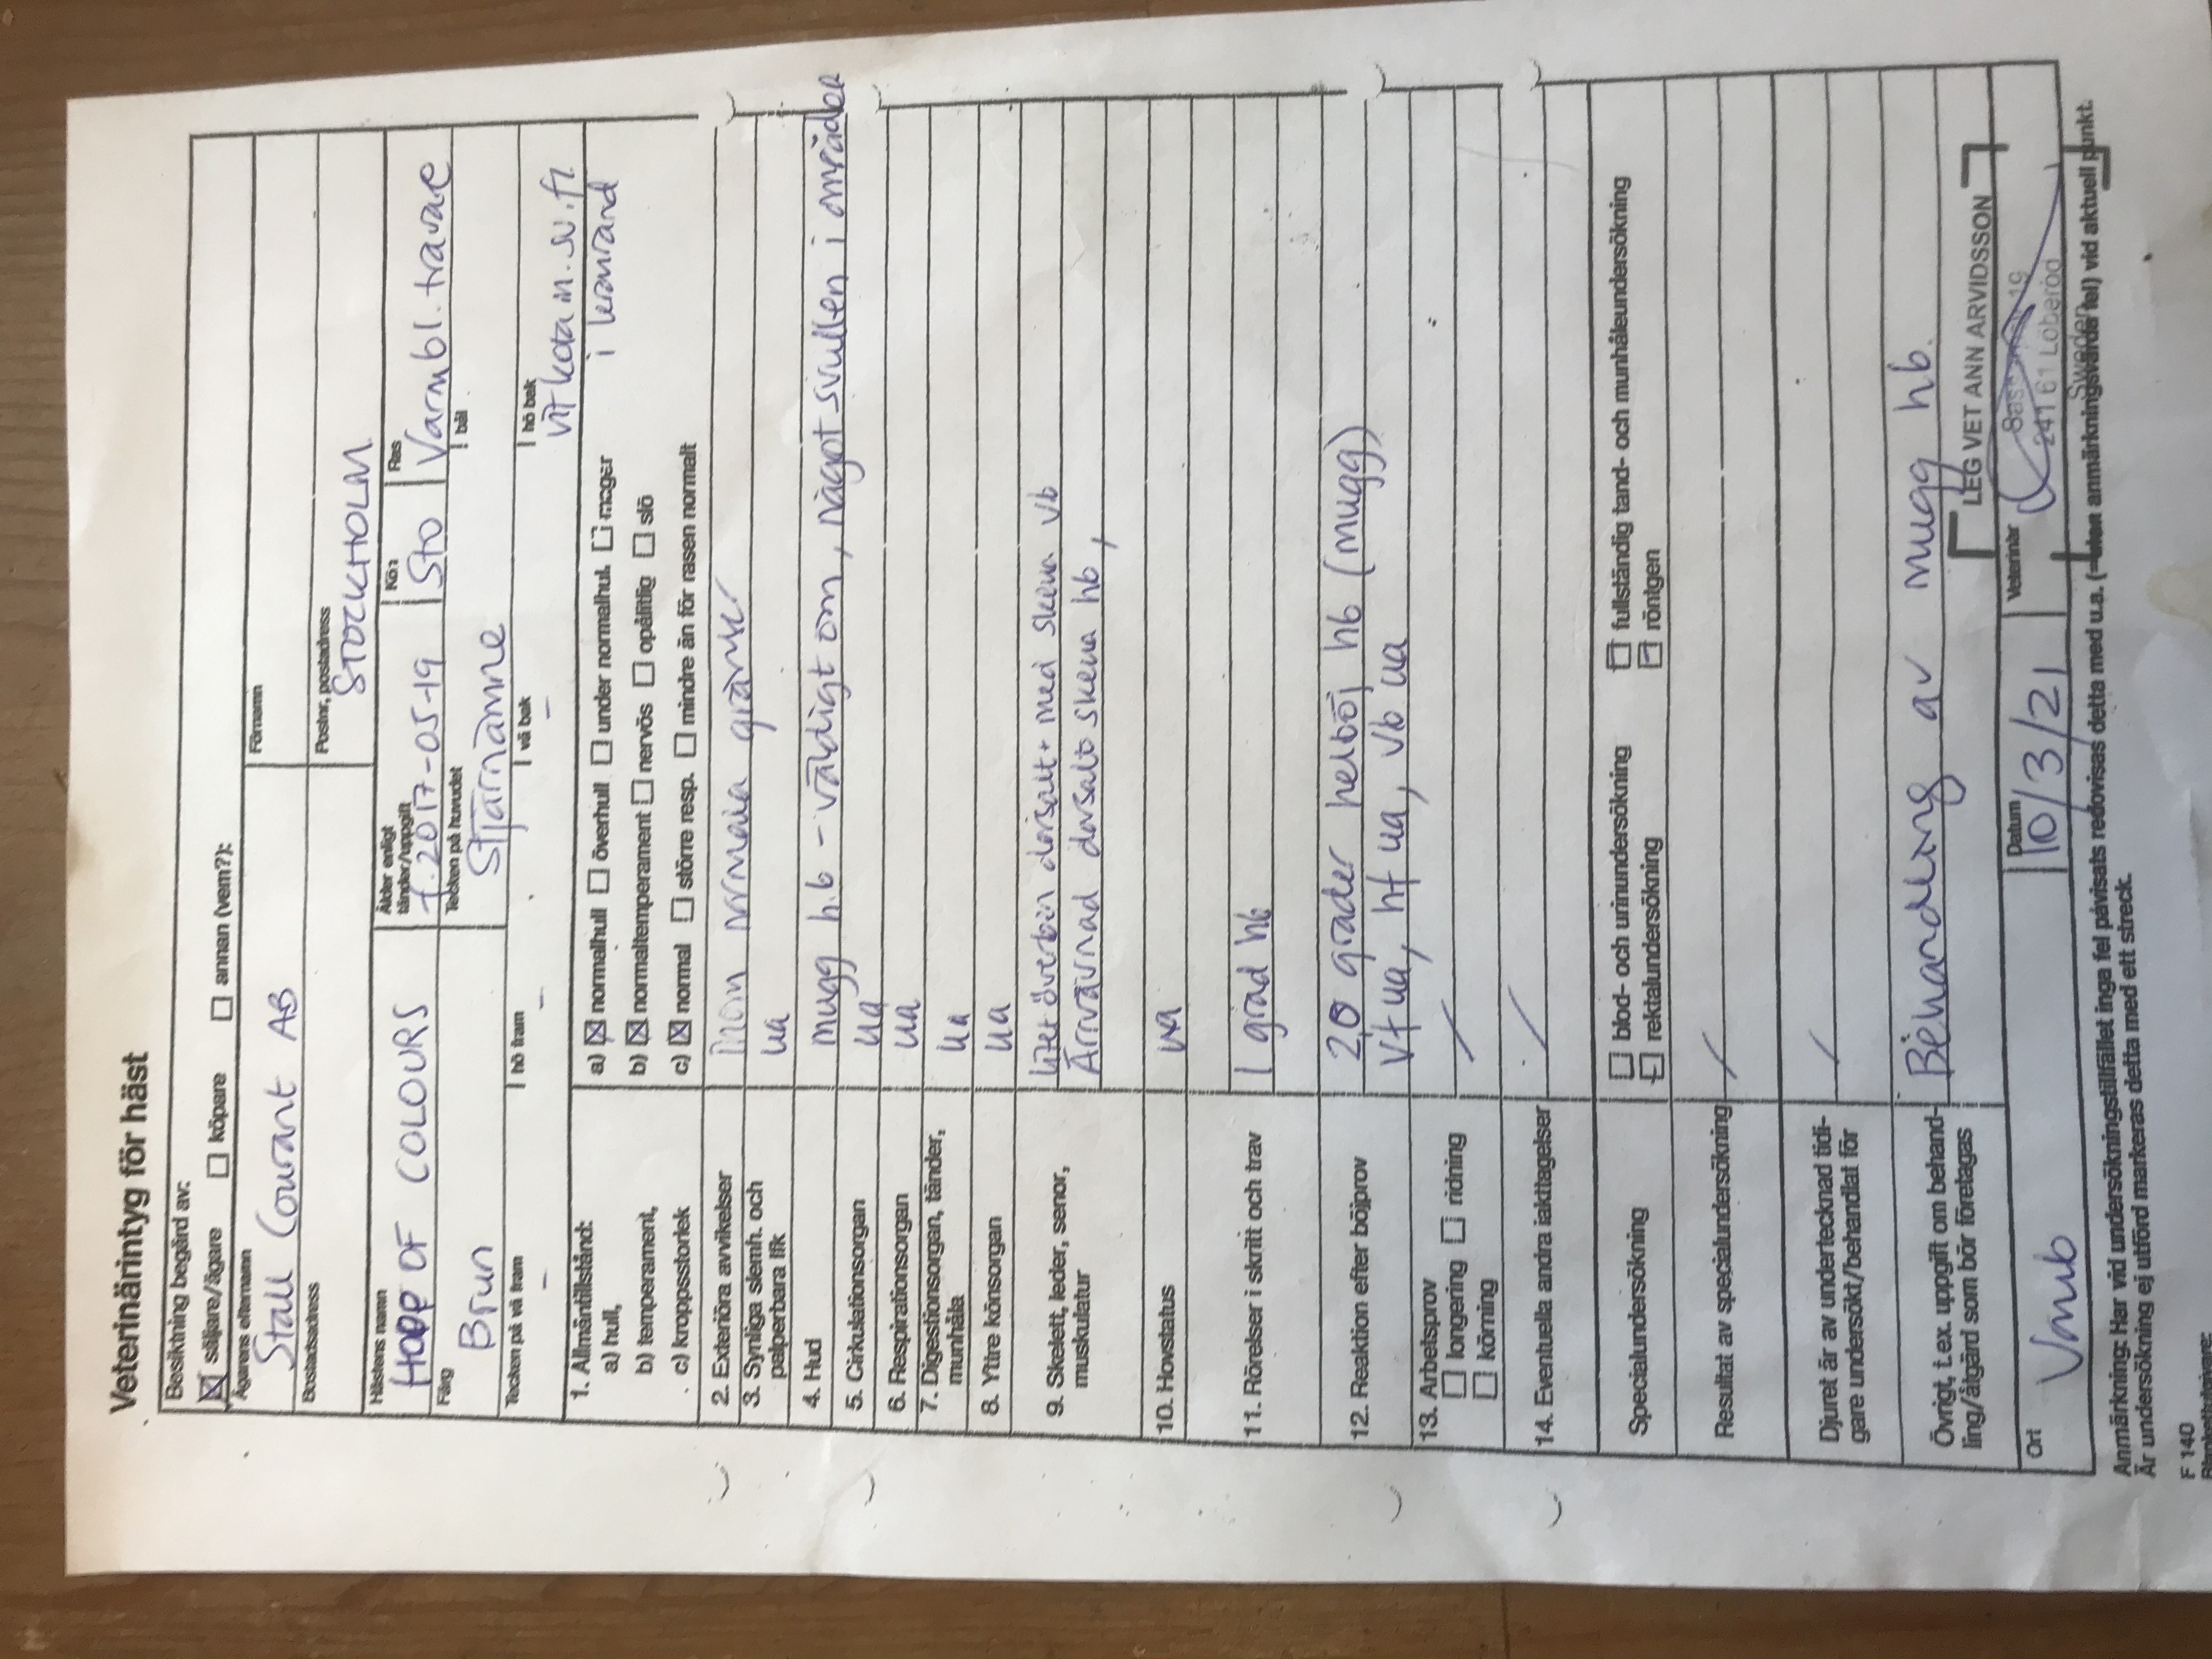 Veterinärintyg för häst
Besiktning begärd av:
säljare/ägare köpare annan (vem?):
Ägarens efternamn Förnamn
Stall Courant AB
Bostadsadress Postnr, postadress
STOCKHOLM
Hästens namn Ålder enligt tänder/uppgift Kön Ras
HOPE OF COLOURS f. 2017-05-19 Sto Varmbl. travare
Färg Tecken på huvudet bål
Brun Stjärnämne
Tecken på vä fram hö fram vä bak hö bak
- - - vit kota m. sv. fl.
i kronrand
1. Allmäntillstånd:
a) hull, a) normalhull överhull under normalhul. mager
b) temperament, b) normaltemperament nervös opålitlig slö
c) kroppsstorlek c) normal större resp. mindre än för rasen normalt
2. Exteriöra avvikelser Inom normala gränser
3. Synliga slemh. och palperbara lfk ua
4. Hud mugg h.b - väldigt öm, något svullen i området
5. Cirkulationsorgan ua
6. Respirationsorgan ua
7. Digestionsorgan, tänder, munhåla ua
8. Yttre könsorgan ua
9. Skelett, leder, senor, muskulatur litet överben dorsalt med skena vb
Ärrvävnad dorsalt skena hb,
10. Hovstatus ua
11. Rörelser i skritt och trav 1 grad hb
12. Reaktion efter böjprov 2,0 grader helböj hb (mugg)
Vf ua, hf ua, vb ua
13. Arbetsprov
longering ridning
körning
14. Eventuella andra iakttagelser
Specialundersökning blod- och urinundersökning fullständig tand- och munhåleundersökning
rektalundersökning röntgen
Resultat av specialundersökning
Djuret är av undertecknad tidi-
gare undersökt/behandlat för
Övrigt, t.ex. uppgift om behand-
ling/åtgärd som bör företagas Behandling av mugg hb.
LEG VET ANN ARVIDSSON
241 61 Löberöd
Sweden
Ort Datum Veterinär
Vomb 10/3/21
Anmärkning: Har vid undersökningstillfället inga fel påvisats redovisas detta med u.a. (=utan anmärkningsvärda fel) vid aktuell punkt.
Är undersökning ej utförd markeras detta med ett streck.
F 140